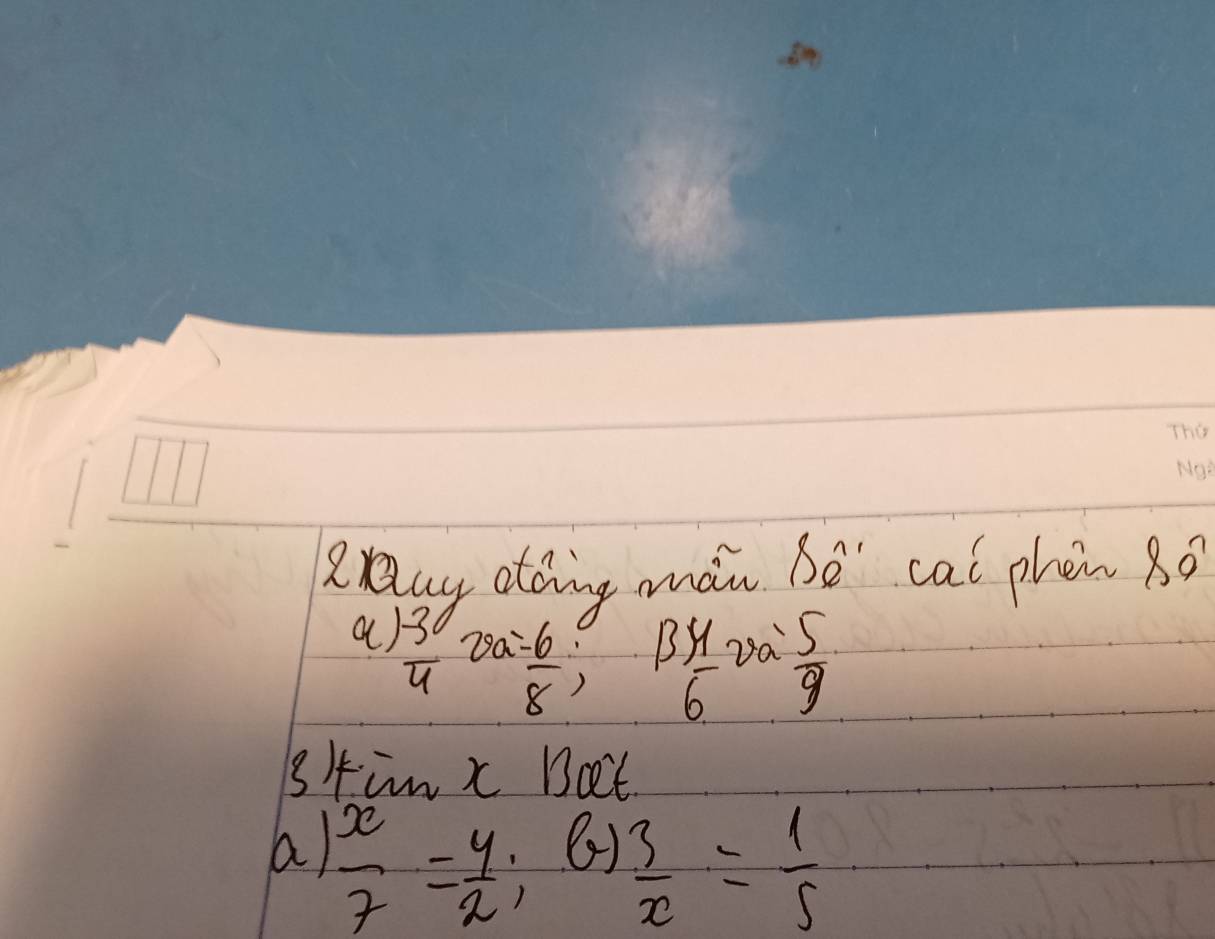 Thứ
Ngà
2) Quy đồng mẫu số các phân số
a) -3/4 và -6/8; B) 4/6 và 5/9
3) tìm x Biết
a) x/7 = 4/2; b) 3/x = 1/5